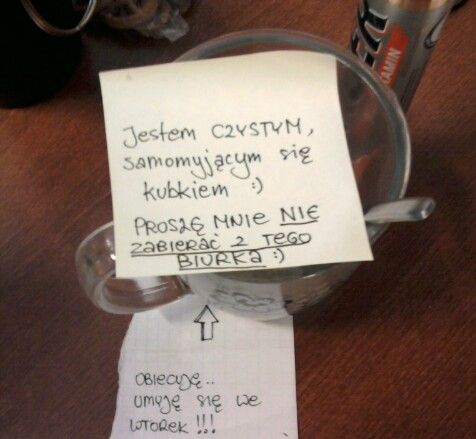 Jestem CZYSTYM,
samomyjącym się
kubkiem :)
PROSZĘ MNIE NIE
ZABIERAĆ Z TEGO
BIURKA :)
OBIECUJĘ..
UMYJĘ SIĘ WE
WTOREK !!!